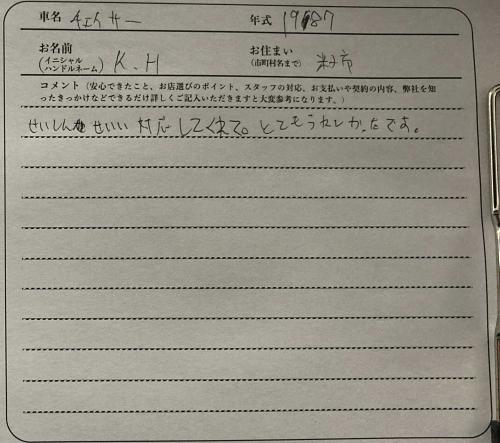 車名 チェイサー 年式 1987
お名前 (イニシャル ハンドルネーム) K.H お住まい (市町村名まで) 米子市
コメント(安心できたこと、お店選びのポイント、スタッフの対応、お支払いや契約の内容、弊社を知
ったきっかけなどできるだけ詳しくご記入いただきますと大変参考になります。)
せいしんせいい 対応してくれて。とてもうれしかったです。